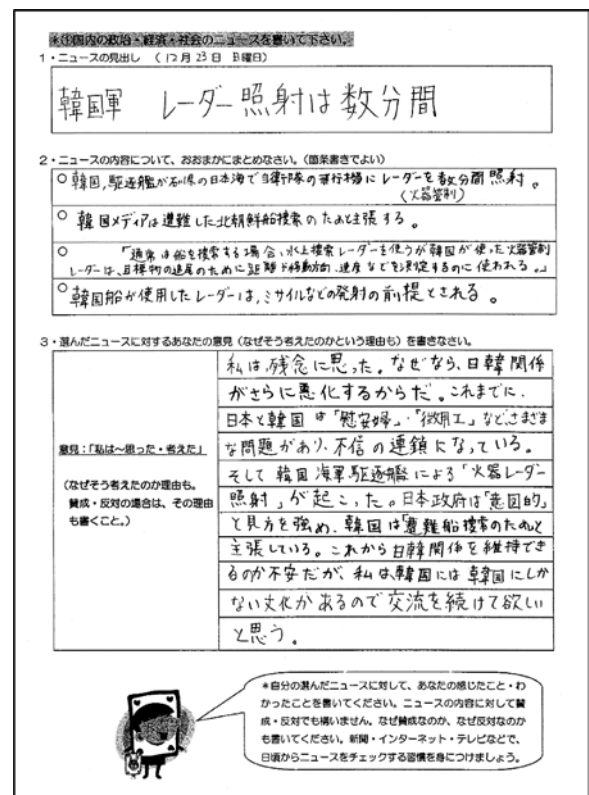 *①国内の政治・経済・社会のニュースを書いて下さい。
1・ニュースの見出し (12月23日 日曜日)
韓国軍 レーダー照射は数分間
2・ニュースの内容について、おおまかにまとめなさい。(箇条書きでよい)
○韓国,駆逐艦が石川県の日本海で自衛隊の飛行機にレーダーを数分間照射。
(火器管制)
○ 韓国メディアは遭難した北朝鮮船捜索のためと主張する。
○ 「通常は船を捜索する場合、水上捜索レーダーを使うが韓国が使った火器管制
レーダーは、目標物の追尾のために距離や移動方向、速度などを測定するのに使われる。」
○韓国船が使用したレーダーは,ミサイルなどの発射の前提とされる。
3・選んだニュースに対するあなたの意見(なぜそう考えたのかという理由も)を書きなさい。
意見:「私は~思った・考えた」
(なぜそう考えたのか理由も。
賛成・反対の場合は、その理由
も書くこと。)
私は,残念に思った。なぜなら、日韓関係
がさらに悪化するからだ。これまでに、
日本と韓国は「慰安婦」・「徴用工」などさまざま
な問題があり、不信の連鎖になっている。
そして韓国海軍駆逐艦による「火器レーダー
照射」が起こった。日本政府は「意図的」
と見方を強め、韓国は「遭難船捜索のためと
主張している。これから日韓関係を維持でき
るのか不安だが、私は、韓国には韓国にしか
ない文化があるので交流を続けて欲しい
と思う。
*自分の選んだニュースに対して、あなたの感じたこと・わ
かったことを書いてください。ニュースの内容に対して賛
成・反対でも構いません。なぜ賛成なのか、なぜ反対なのか
も書いてください。新聞・インターネット・テレビなどで、
日頃からニュースをチェックする習慣を身につけましょう。